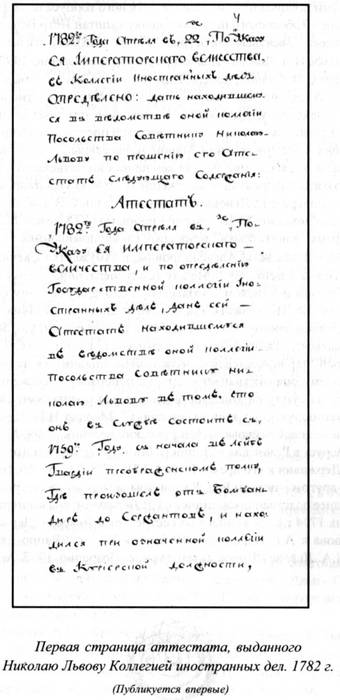 1782го Года Апреля въ, 22, По Указу
Ея Императорскаго Величества,
въ Коллегіи Иностранныхъ делъ
определено: дать находящемуся
въ ведомстве оной коллегіи
Посольства Советнику Николаю
Львову по прошенію его Атте-
статъ следующаго Содержанія:
Аттестатъ.
1782го Года Апреля въ По
Указу Ея Императорскаго
величества, и по определенію
Государственной коллегіи Ино-
странныхъ делъ, данъ сей
Аттестатъ находящемуся
въ ведомстве оной коллегіи
Посольства Советнику Ни-
колаю Львову въ томъ, что
онъ въ службе состоитъ съ,
1759го Году, съ начала въ Лейбъ
Гвардіи преображенскомъ полку,
Где произошелъ отъ Бомбан-
дира до Сержантовъ, и нахо-
дился при означенной коллегіи
въ Курьерской должности,
4
Первая страница аттестата, выданного
Николаю Львову Коллегией иностранных дел. 1782 г.
(Публикуется впервые)